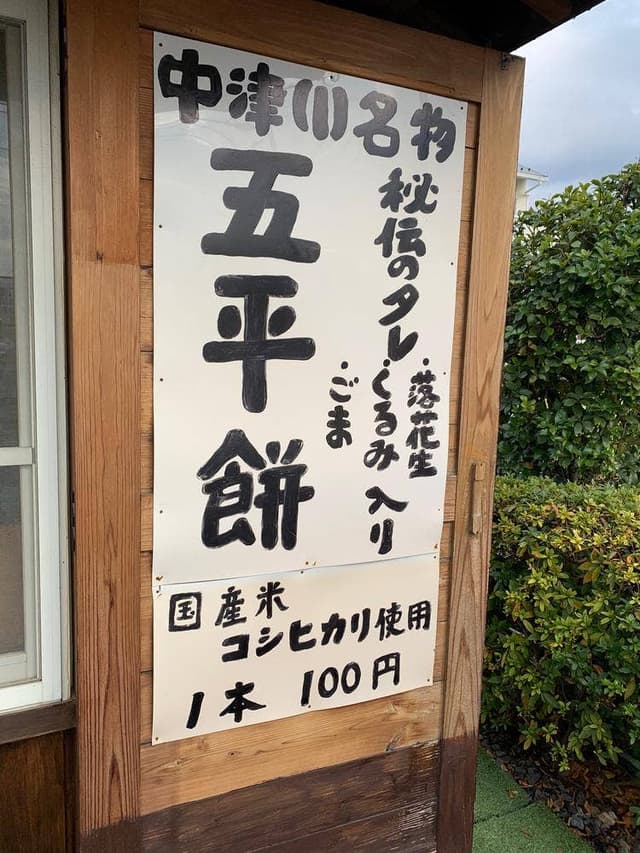 中津川名物
五平餅
秘伝のタレ
・落花生
・くるみ
・ごま
入り
国産米
コシヒカリ使用
1本 100円